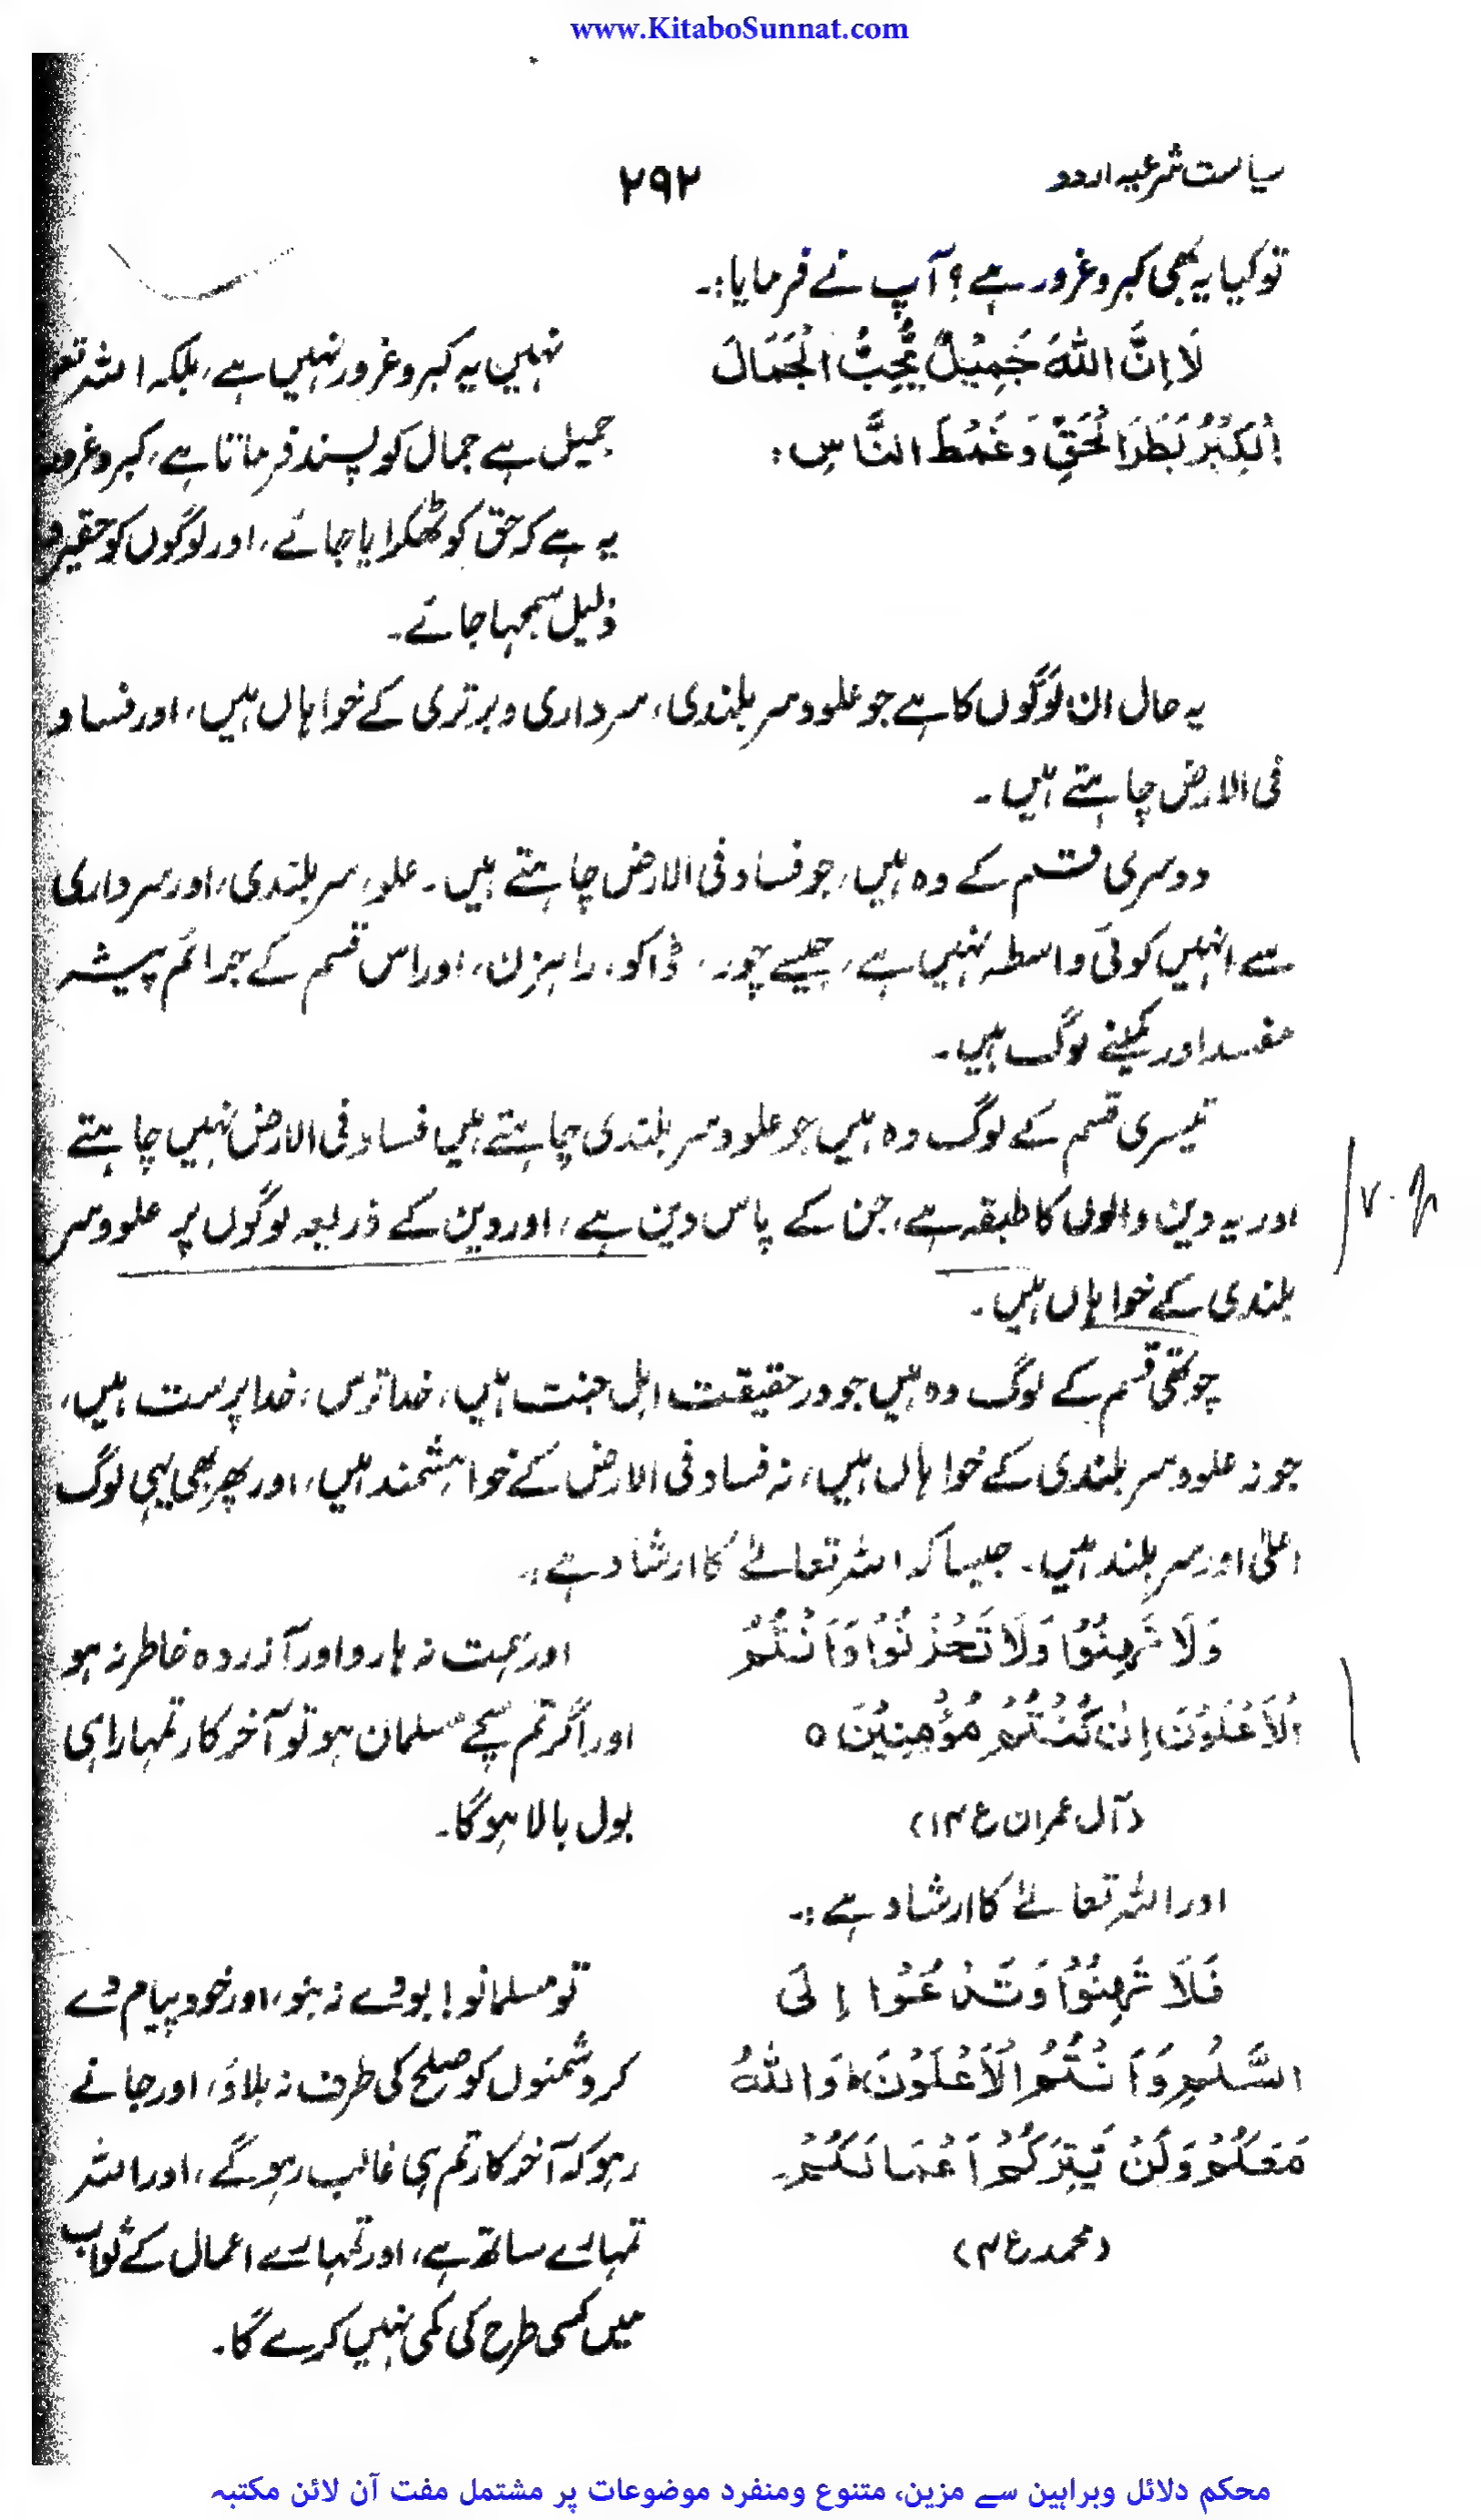 www.KitaboSunnat.com
سیاست شرعیہ اردو
۲۹۲
تو کیا یہ بھی کبر و غرور ہے؟ آپ نے فرمایا:۔
لَا اِنَّ اللّٰهَ جَمِيْلٌ يُّحِبُّ الْجَمَالَ
اَلْكِبْرُ بَطَرَ الْحَقِّ وَغَمْطَ النَّاسِ:
نہیں یہ کبر و غرور نہیں ہے، بلکہ اللہ تعا
جمیل ہے جمال کو پسند فرماتا ہے، کبر و غرور
یہ ہے کہ حق کو ٹھکرایا جائے، اور لوگوں کو حقیر و
ذلیل سمجہا جائے۔
یہ حال ان لوگوں کا ہے جو علو و سر بلندی، سرداری و برتری کے خواہاں ہیں، اور فساد
فی الارض چاہتے ہیں۔
دوسری قسم کے وہ ہیں، جو فساد فی الارض چاہتے ہیں۔ علو، سر بلندی، اور سرداری
سے انہیں کوئی واسطہ نہیں ہے، جیسے چور، ڈاکو، راہزن، اور اس قسم کے جرائم پیشہ
مفسد اور کمینے لوگ ہیں۔
تیسری قسم کے لوگ وہ ہیں جو علو و سر بلندی چاہتے ہیں فساد فی الارض نہیں چاہتے
اور یہ دین والوں کا طبقہ ہے، جن کے پاس دین ہے، اور دین کے ذریعہ لوگوں پر علو و سر
بلندی کے خواہاں ہیں۔
چوتھی قسم کے لوگ وہ ہیں جو در حقیقت اہل جنت ہیں، خدا ترس، خدا پرست ہیں،
جو نہ علو و سر بلندی کے خواہاں ہیں، نہ فساد فی الارض کے خواہشمند ہیں، اور پھر بھی یہی لوگ
اعلیٰ اور سر بلند ہیں۔ جیسا کہ اللہ تعالےٰ کا ارشاد ہے:۔
وَلَا تَهِنُوْا وَلَا تَحْزَنُوْا وَاَنْتُمُ
الْاَعْلَوْنَ اِنْ كُنْتُمْ مُؤْمِنِيْنَ ٥
(آل عمران ع ۱۴)
اور ہمت نہ ہارو اور آزردہ خاطر نہ ہو
اور اگر تم سچے مسلمان ہو تو آخر کار تمہارا ہی
بول بالا ہوگا۔
اور اللہ تعالےٰ کا ارشاد ہے:۔
فَلَا تَهِنُوْا وَتَدْعُوْا اِلَى
السَّلْمِ وَاَنْتُمُ الْاَعْلَوْنَ وَاللّٰهُ
مَعَكُمْ وَلَنْ يَّتِرَكُمْ اَعْمَالَكُمْ۔
(محمد ع ۴)
تو مسلمانو! بودے نہ بنو، اور خود پیام دے
کر دشمنوں کو صلح کی طرف نہ بلاؤ، اور جانے
رہو کہ آخر کار تم ہی غالب رہو گے، اور اللہ
تمہارے ساتھ ہے، اور تمہارے اعمال کے ثواب
میں کسی طرح کی کمی نہیں کرے گا۔
محکم دلائل وبراہین سے مزین، متنوع ومنفرد موضوعات پر مشتمل مفت آن لائن مکتبہ